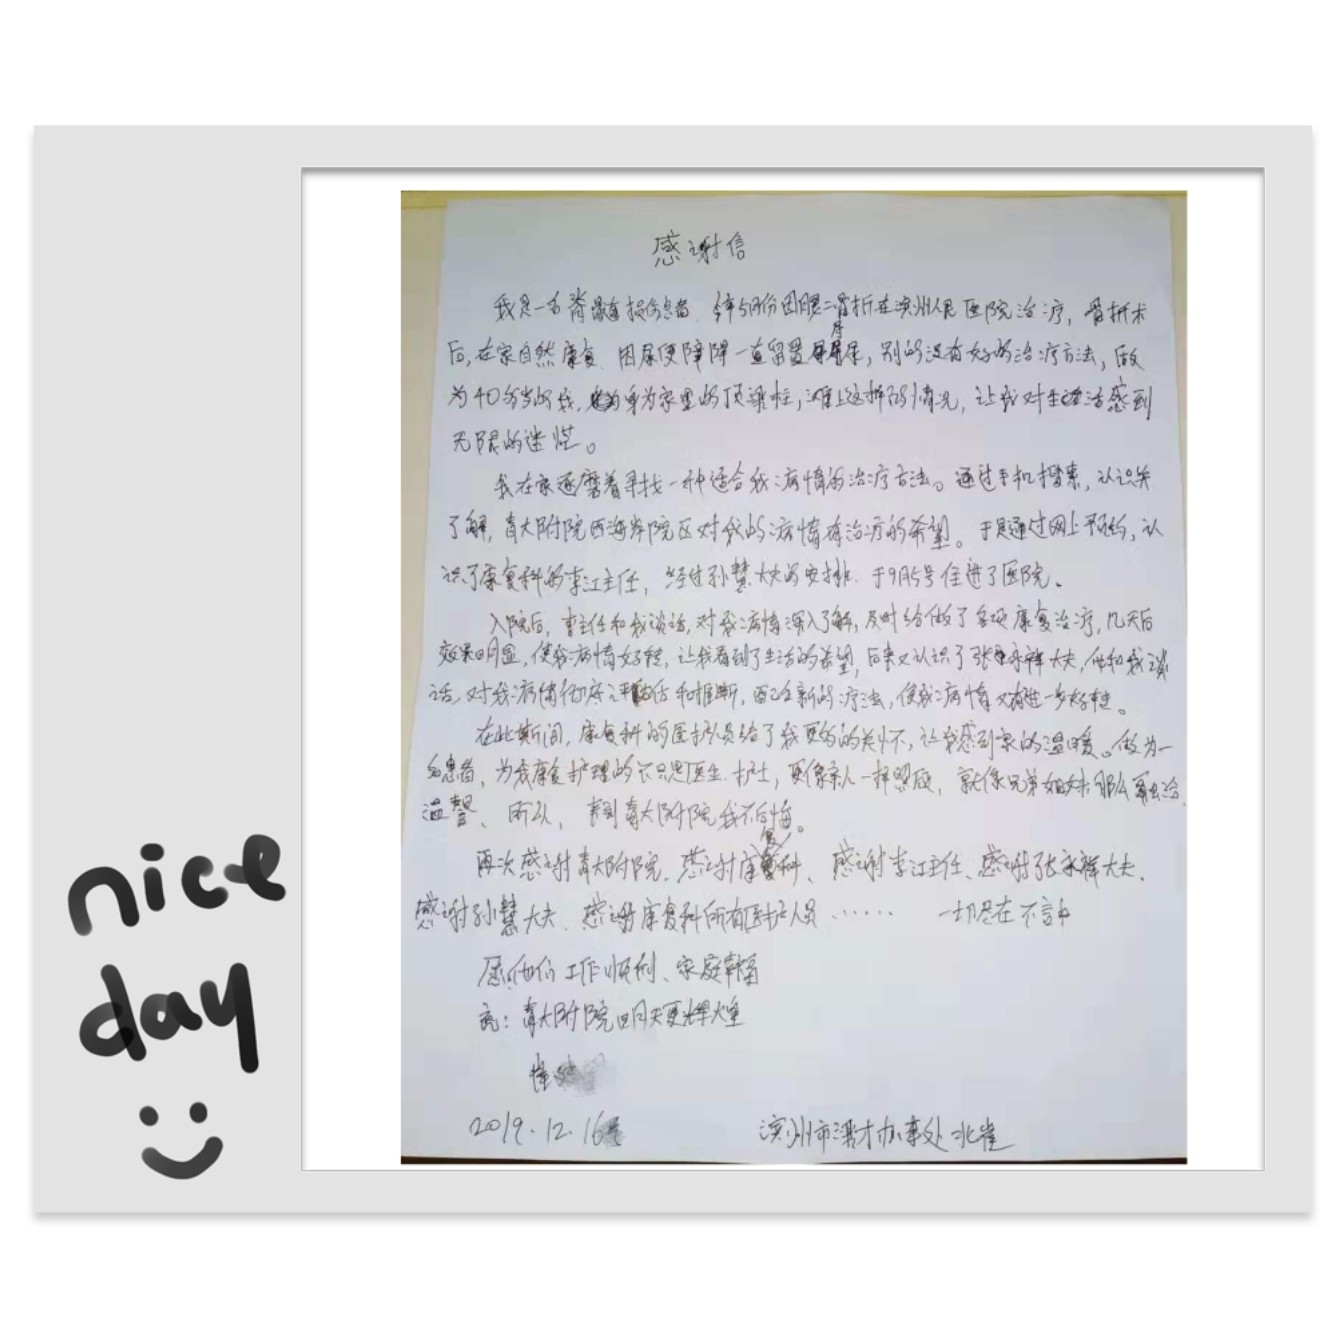 感谢信
我是一名脊髓损伤患者,今年5月份因腰二骨折在滨州人民医院治疗,骨折术
后,在家自然康复,因尿便障碍一直留置导尿,别的没有好的治疗方法,做
为40多岁的我,身为家里的顶梁柱,摊上这样的情况,让我对生活感到
无限的迷茫。
我在家逐磨着寻找一种适合我病情的治疗方法。通过手机搜索,认识
了解,青大附院西海岸院区对我的病情有治疗的希望。于是通过网上预约,认
识了康复科的李江主任,经过孙慧大夫的安排,于9月5号住进了医院。
入院后,李主任和我谈话,对我病情深入了解,及时给做了各项康复治疗,几天后
效果明显,使我病情好转,让我看到了生活的希望,后来又认识了张永祥大夫,他和我谈
话,对我病情彻底评估和推断,配合新的疗法,使我病情又有进一步好转。
在此期间,康复科的医护人员给了我更多的关怀,让我感到家的温暖。做为一
名患者,为我康复护理的不只是医生、护士,更像亲人一样照顾,就像兄弟姐妹那么
温馨、所以,来到青大附院我不后悔。
再次感谢青大附院、感谢康复科、感谢李江主任、感谢张永祥大夫、
感谢孙慧大夫、感谢康复科所有医护人员…… 一切尽在不言中
愿他们工作顺利、家庭幸福
祝:青大附院明天更辉煌
2019.12.16
滨州市梁才办事处北崔
nice
day